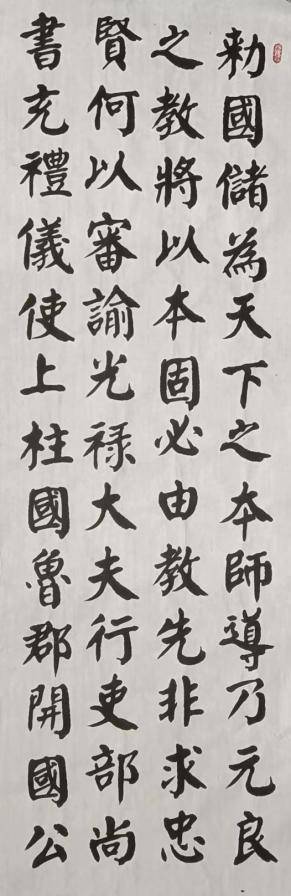 勑國儲為天下之本師導乃元良
之教將以本固必由教先非求忠
賢何以審諭光祿大夫行吏部尚
書充禮儀使上柱國魯郡開國公